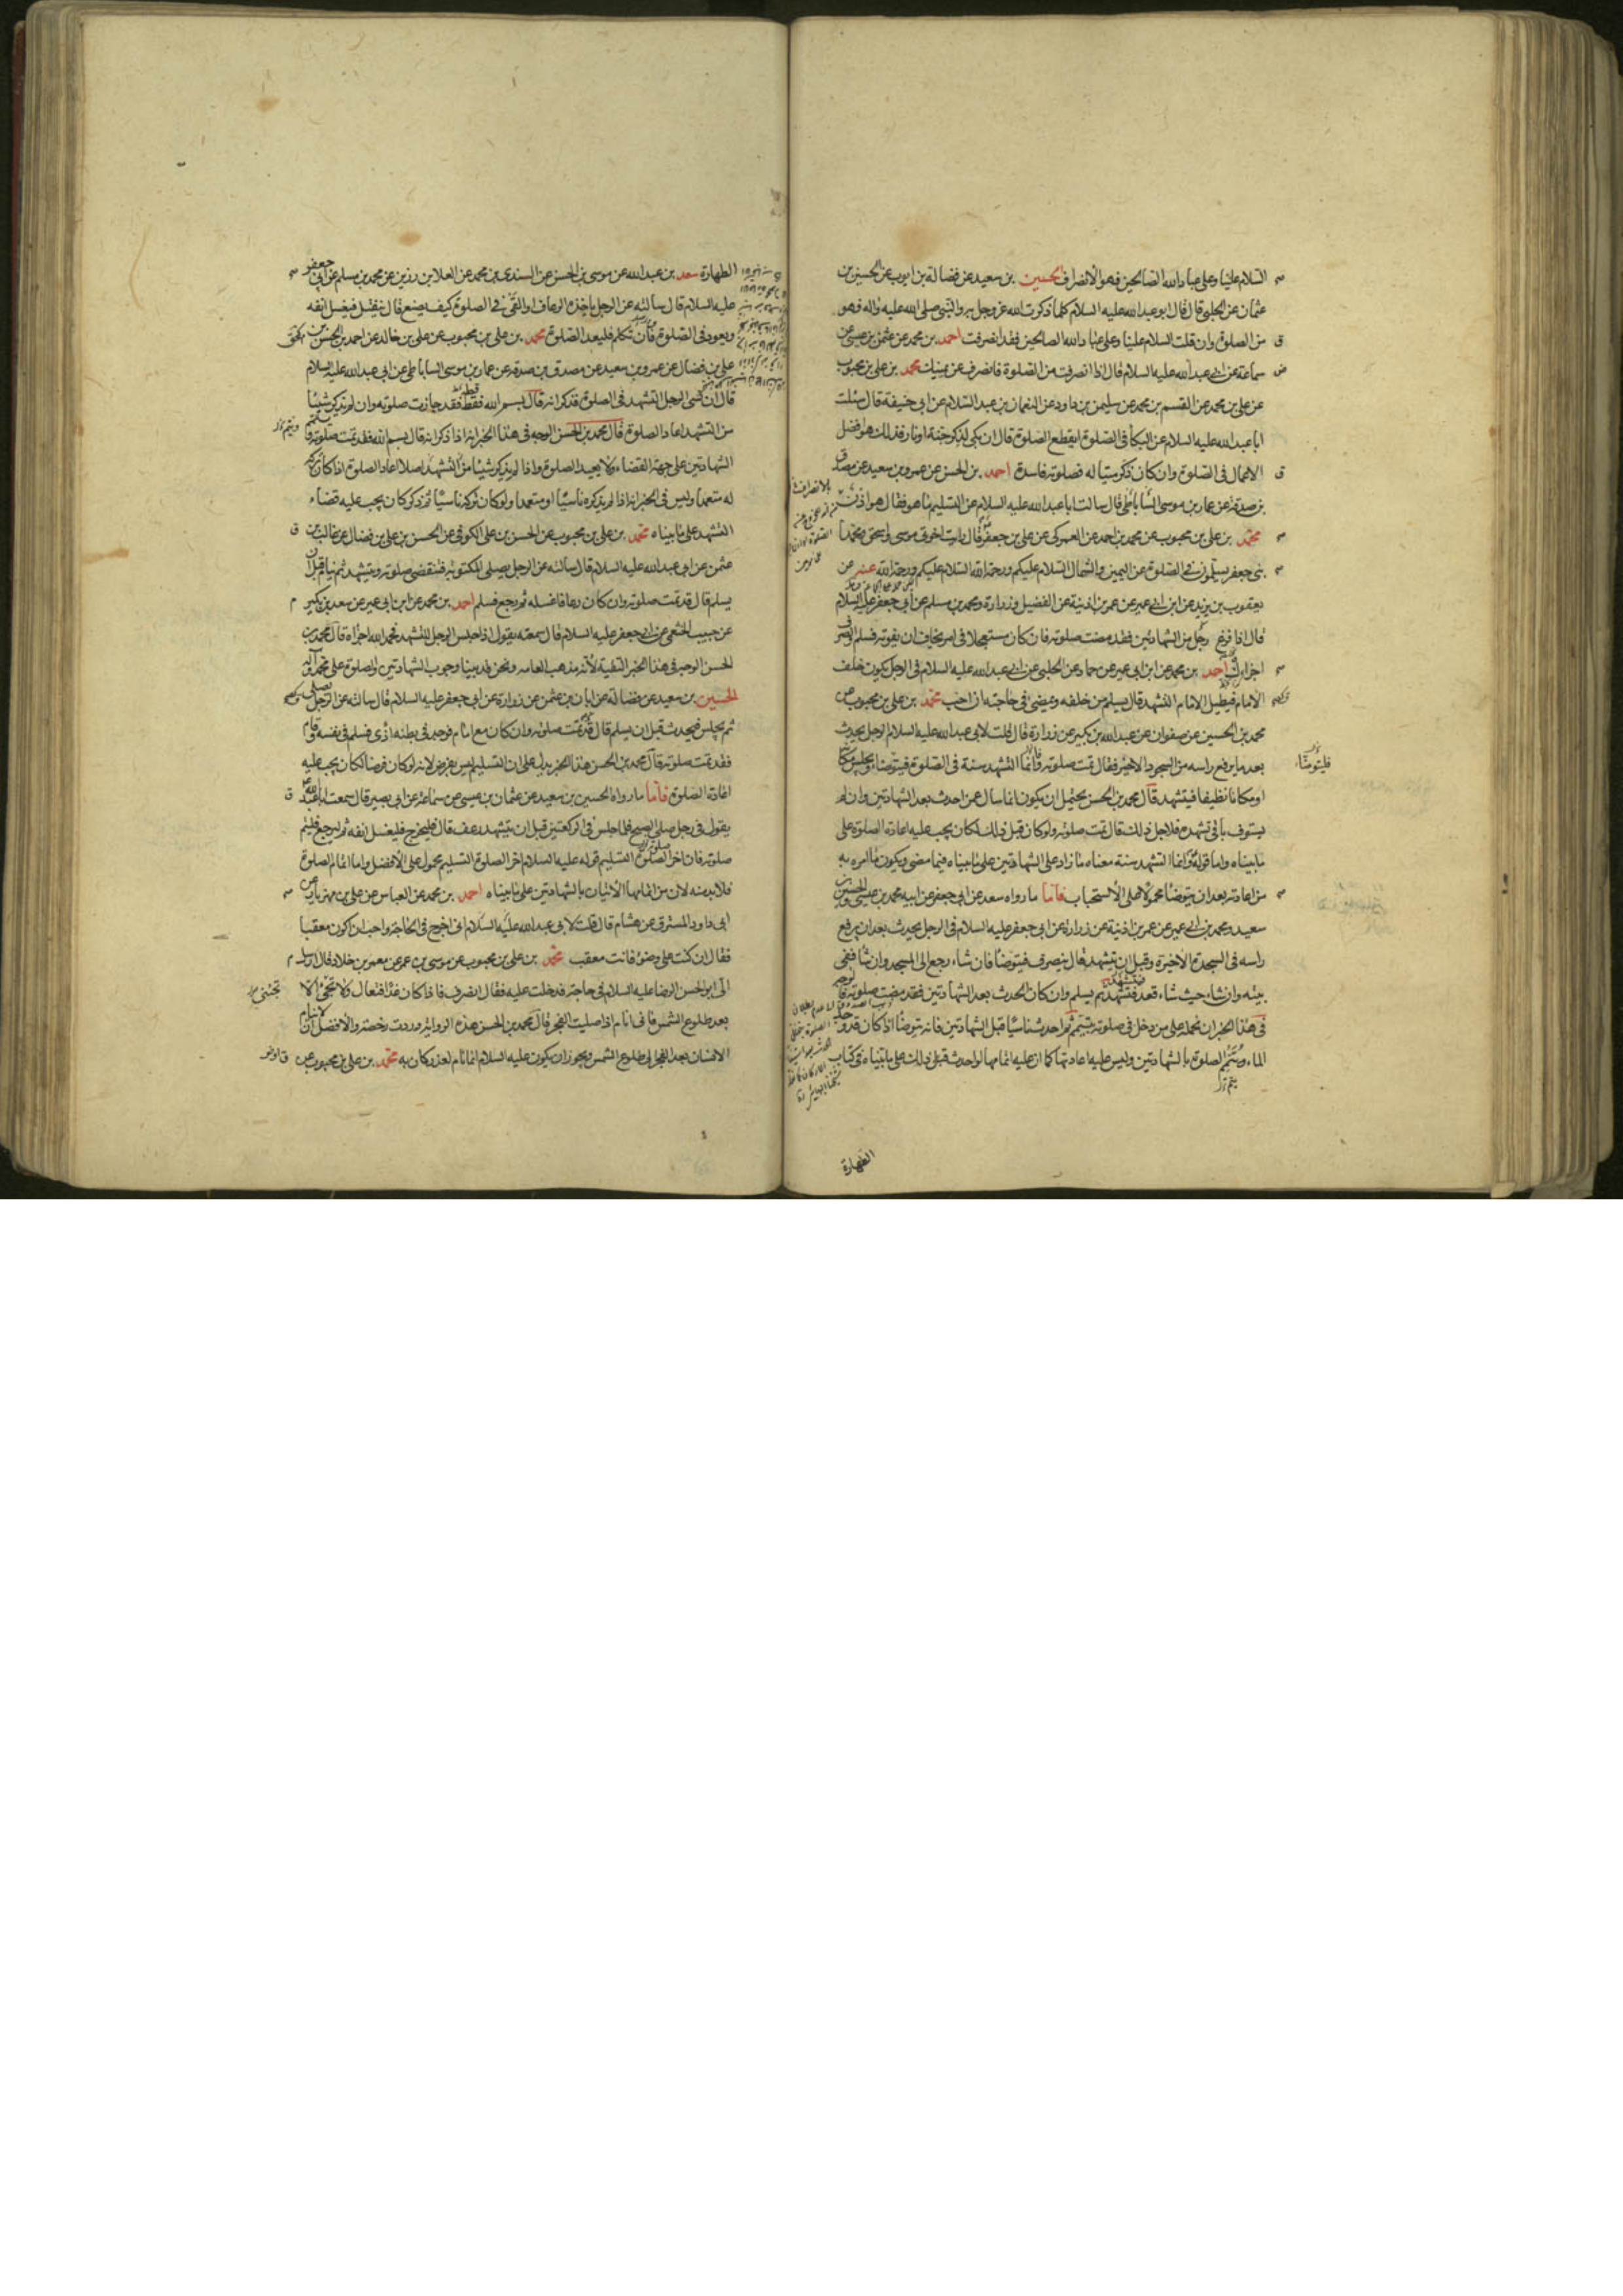 السلام علينا وعلى عباد الله الصالحين فهو الانصراف الحسين بن سعيد عن فضالة بن ايوب عن الحسين بن
عثمان عن الحلبي قال قال ابو عبد الله عليه السلام كلما ذكرت الله عز وجل به والنبي صلى الله عليه واله فهو
من الصلوة وان قلت السلام علينا وعلى عباد الله الصالحين فقد انصرفت احمد بن محمد عن عثمن بن عيسى عن
سماعة عن ابي عبد الله عليه السلام قال اذا انصرفت من الصلوة فانصرف عن يمينك محمد بن علي بن محبوب
عن علي بن محمد عن القسم بن محمد عن سليمن بن داود عن النعمان بن عبد السلام عن ابي حنيفة قال سئلت
ابا عبد الله عليه السلام عن البكأ في الصلوة ايقطع الصلوة قال ان بكى لذكر جنة او نار فذلك هو افضل
الاعمال في الصلوة وان كان ذكر ميتا له فصلوته فاسدة احمد بن الحسن عن عمرو بن سعيد عن مصدق
بن صدقة عن عمار بن موسى الساباطي قال سالت ابا عبد الله عليه السلام عن التسليم ما هو فقال هو اذن
محمد بن علي بن محبوب عن محمد بن احمد عن العمركي عن علي بن جعفر قال رايت اخوتي موسى واسحق ومحمدا
بني جعفر يسلمون في الصلوة عن اليمين والشمال السلام عليكم ورحمة الله السلام عليكم ورحمة الله عنه عن
يعقوب بن يزيد عن ابن ابي عمير عن عمر بن اذينة عن الفضيل وزرارة ومحمد بن مسلم عن ابي جعفر عليه السلام
قال اذا فرغ رجل من الشهادتين فقد مضت صلوته فان كان مستعجلا في امر يخاف ان يفوته فسلم وانصرف
اجزأه احمد بن محمد عن ابن ابي عمير عن حماد عن الحلبي عن ابي عبد الله عليه السلام في الرجل يكون خلف
الامام فيطيل الامام التشهد قال يسلم من خلفه ويمضي في حاجته ان احب محمد بن علي بن محبوب عن
محمد بن الحسين عن صفوان عن عبد الله بن بكير عن زرارة قال قلت لابي عبد الله عليه السلام الرجل يحدث
بعد ما يرفع راسه من السجود الاخير فقال تمت صلوته وانما التشهد سنة في الصلوة فيتوضأ ويجلس مكانه
فليتوضأ
او مكانا نظيفا فيتشهد قال محمد بن الحسن يحتمل ان يكون انما سال عمن احدث بعد الشهادتين وان لم
يستوف باقي تشهده فلاجل ذلك قال تمت صلوته ولو كان قبل ذلك لكان يجب عليه اعادة الصلوة على
ما بيناه واما قوله انما التشهد سنة معناه ما زاد على الشهادتين على ما بيناه فيما مضى ويكون ما امره به
من اعادته بعد ان يتوضأ محمولا على الاستحباب فاما ما رواه سعد عن ابي جعفر عن ابيه محمد بن عيسى والحسين بن
سعيد ومحمد بن ابي عمير عن عمر بن اذينة عن زرارة عن ابي جعفر عليه السلام في الرجل يحدث بعد ان يرفع
راسه في السجدة الاخيرة وقبل ان يتشهد قال ينصرف فيتوضأ فان شاء رجع الى المسجد وان شأ ففي
بيته وان شاء حيث شاء قعد فتشهد ثم يسلم وان كان الحدث بعد الشهادتين فقد مضت صلوته
في هذا الخبر ان نحمله على من دخل في صلوته بتيمم ثم احدث ناسيا قبل الشهادتين فانه يتوضأ اذا كان قد وجد
الماء ويتمم الصلوة بالشهادتين وليس عليه اعادتها كما ان عليه اتمامها لو احدث قبل ذلك على ما بيناه في كتاب
الطهارة
الطهارة سعد بن عبد الله عن موسى بن الحسن عن السندي بن محمد عن العلا بن رزين عن محمد بن مسلم عن ابي جعفر
عليه السلام قال سالته عن الرجل ياخذه الرعاف او القئ في الصلوة كيف يصنع قال ينفتل فيغسل انفه
ويعود في الصلوة فان تكلم فليعد الصلوة محمد بن علي بن محبوب عن علي بن خالد عن احمد بن الحسن بن
علي بن فضال عن عمرو بن سعيد عن مصدق بن صدقة عن عمار بن موسى الساباطي عن ابي عبد الله عليه السلام
قال ان نسى الرجل التشهد في الصلوة فذكر انه قال بسم الله فقط فقد جازت صلوته وان لم يذكر شيئا
من التشهد اعاد الصلوة قال محمد بن الحسن الوجه في هذا الخبر انه اذا ذكر انه قال بسم الله فقد تمت صلوته
الشهادتين على جهة القضاء ولا يعيد الصلوة واذا لم يذكر شيئا من التشهد اصلا اعاد الصلوة اذا كان تركه
له متعمدا وليس في الخبر انه اذا لم يذكره ناسيا او متعمدا ولو كان تركه ناسيا ثم ذكر كان يجب عليه قضاء
التشهد على ما بيناه محمد بن علي بن محبوب عن الحسن بن علي الكوفي عن الحسن بن علي بن فضال عن غالب بن
عثمن عن ابي عبد الله عليه السلام قال سالته عن الرجل يصلي المكتوبة فتنقضي صلوته ويتشهد ثم ينام قبل ان
يسلم قال قد تمت صلوته وان كان رعافا غسله ثم رجع فسلم احمد بن محمد عن ابن ابي عمير عن سعد بن بكير
عن حبيب الخثعمي عن ابي جعفر عليه السلام قال سمعته يقول اذا جلس الرجل للتشهد فحمد الله اجزاه قال محمد بن
الحسن الوجه في هذا الخبر التقية لانه مذهب العامه ونحن قد بينا وجوب الشهادتين والصلوة على محمد وآله
الحسين بن سعيد عن فضالة عن ابان بن عثمن عن زرارة عن ابي جعفر عليه السلام قال سالته عن الرجل يصلي
ثم يجلس فيحدث قبل ان يسلم قال قد تمت صلوته وان كان مع امام فوجد في بطنه اذى فسلم في نفسه وقام
فقد تمت صلوته قال محمد بن الحسن هذا الخبر يدل على ان التسليم ليس بفرض لانه لو كان فرضا لكان يجب عليه
اعادة الصلوة فاما ما رواه الحسين بن سعيد عن عثمان بن عيسى عن سماعة عن ابي بصير قال سمعت ابا عبد الله
يقول في رجل صلى الصبح فلما جلس في الركعتين قبل ان يتشهد رعف قال فليخرج فليغسل انفه ثم ليرجع فليتم
صلوته فان اخر الصلوة التسليم قوله عليه السلام اخر الصلوة التسليم محمول على الافضل واما اتمام الصلوة
فلا بد منه لان من اتمامها الاتيان بالشهادتين على ما بيناه احمد بن محمد عن العباس عن علي بن مهزيار عن
ابي داود المسترق عن هشام قال قلت لابي عبد الله عليه السلام اني اخرج في الحاجة واحب ان اكون معقبا
فقال ان كنت على وضوء فانت معقب محمد بن علي بن محبوب عن موسى بن عمر عن معمر بن خلاد قال ارسل
الي ابو الحسن الرضا عليه السلام في حاجة فدخلت عليه فقال انصرف فاذا كان غدا فتعال ولا تجئ الا
بعد طلوع الشمس فاني انام اذا صليت الفجر قال محمد بن الحسن هذه الرواية وردت رخصة والافضل ان لا ينام
الانسان بعد الفجر الى طلوع الشمس ويجوز ان يكون عليه السلام انما نام لعذر كان به محمد بن علي بن محبوب عن